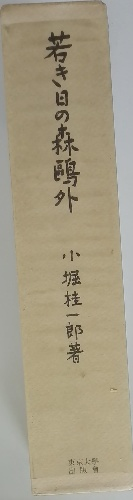 若き日の森鷗外
小堀桂一郎著
東京大学
出版會